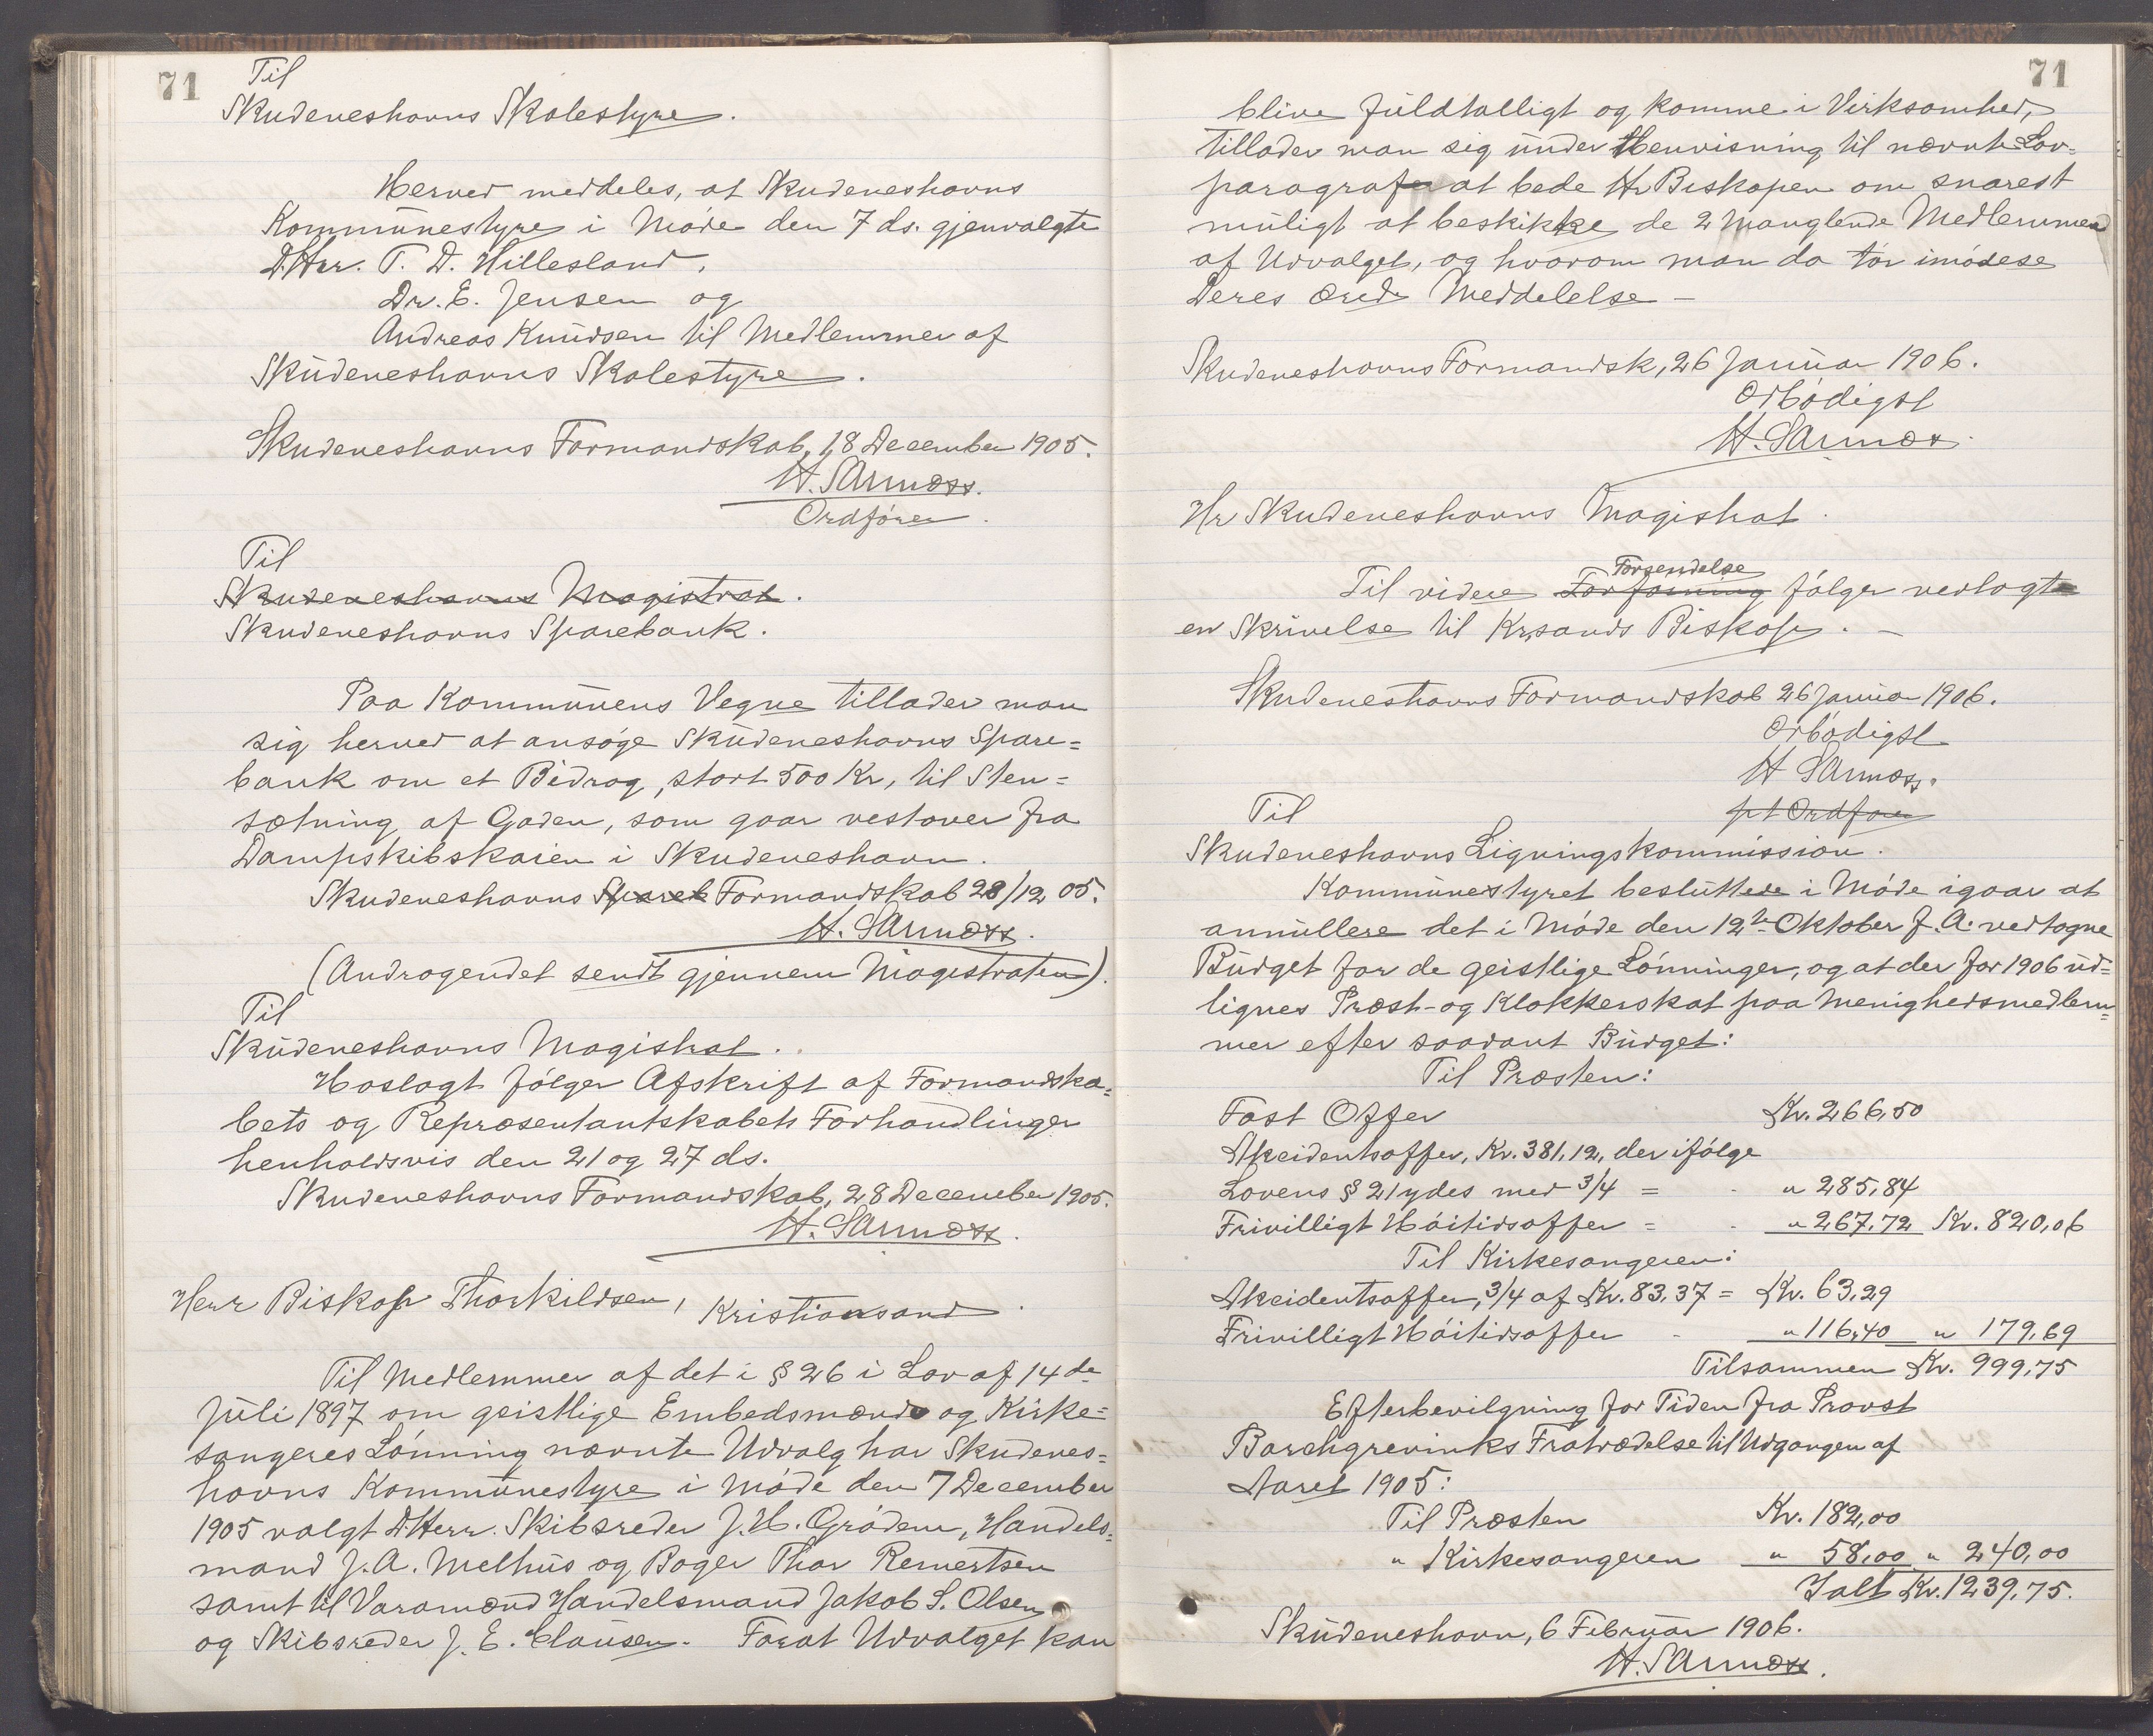 71
Til
Skudeneshavns Skolestyre.
Herved meddeles, at Skudeneshavns
Kommunestyre i Møde den 7 ds. gjenvalgte
D'Hrr. T. D. Hillesland,
Dr. E. Jensen og
Andreas Knudsen til Medlemmer af
Skudeneshavns Skolestyre.
Skudeneshavns Formandskab, 18 December 1905.
Ordfører.
Til
Skudeneshavns Magistrat.
Skudeneshavns Sparebank.
Paa Kommunens Vegne tillader man
sig herved at ansøge Skudeneshavns Spare=
bank om et Bidrag, stort 500 Kr, til Sten=
sætning af Gaden, som gaar vestover fra
Dampskibskaien i Skudeneshavn.
Skudeneshavns Spareb Formandskab 28/12 05.
(Andragendet sendt gjennem Magistraten).
Til
Skudeneshavns Magistrat.
Hoslagt følger Afskrift af Formandska=
bets og Repræsentantskabets Forhandlinger
henholdsvis den 21 og 27 ds.
Skudeneshavns Formandskab, 28 December 1905.
Herr Biskop Thorkildsen, Kristiansand.
Til Medlemmer af det i § 26 i Lov af 14de
Juli 1897 om geistlige Embedsmænds og Kirke=
sangeres Lønning nævnte Udvalg har Skudenes=
havns Kommunestyre i Møde den 7 December
1905 valgt D'Herr. Skibsreder J. H. Grødem, Handels=
mand J. A. Melhus og Bager Thor Reinertsen
samt til Varamænd Handelsmand Jakob S. Olsen
og Skibsreder J. E. Clausen. Forat Udvalget kan
71
blive fuldtalligt og komme i Virksomhed,
tillader man sig under Henvisning til nævnte Lov=
paragraf at bede Hr Biskopen om snarest
muligt at beskikke de 2 manglende Medlemmer
af Udvalget, og hvorom man da tør imødese
Deres ærede Meddelelse –
Skudeneshavns Formandsk, 26 Januar 1906.
Ørbødigst
Hr Skudeneshavns Magistrat.
Til videre Forføining Forsendelse følger vedlagt
en Skrivelse til Krsands Biskop. –
Skudeneshavns Formandskab 26 Januar 1906.
Ørbødigst
pt Ordfører
Til
Skudeneshavns Ligningskommission.
Kommunestyret besluttede i Møde igaar at
annullere det i Møde den 12te Oktober f. A. vedtagne
Budget for de geistlige Lønninger, og at der for 1906 ud=
lignes Præst- og Klokkerskat paa Menighedsmedlem=
mer efter saadant Budget:
Til Præsten:
Fast Offer Kr. 266,50
Akcidentsoffer, Kr. 381,12, der ifølge
Lovens § 21 ydes med 3/4 = " 285,84
Frivilligt Høitidsoffer = " 267,72 Kr. 820,06
Til Kirkesangeren:
Akcidentsoffer, 3/4 af Kr. 83,37 = Kr. 63,29
Frivilligt Høitidsoffer - " 116,40 " 179,69
Tilsammen Kr. 999,75
Efterbevilgning for Tiden fra Provst
Borchgrevinks Fratrædelse til Udgangen af
Aaret 1905:
Til Præsten Kr. 182,00
" Kirkesangeren " 58,00 " 240,00
Ialt Kr. 1239,75.
Skudeneshavn, 6 Februar 1906.